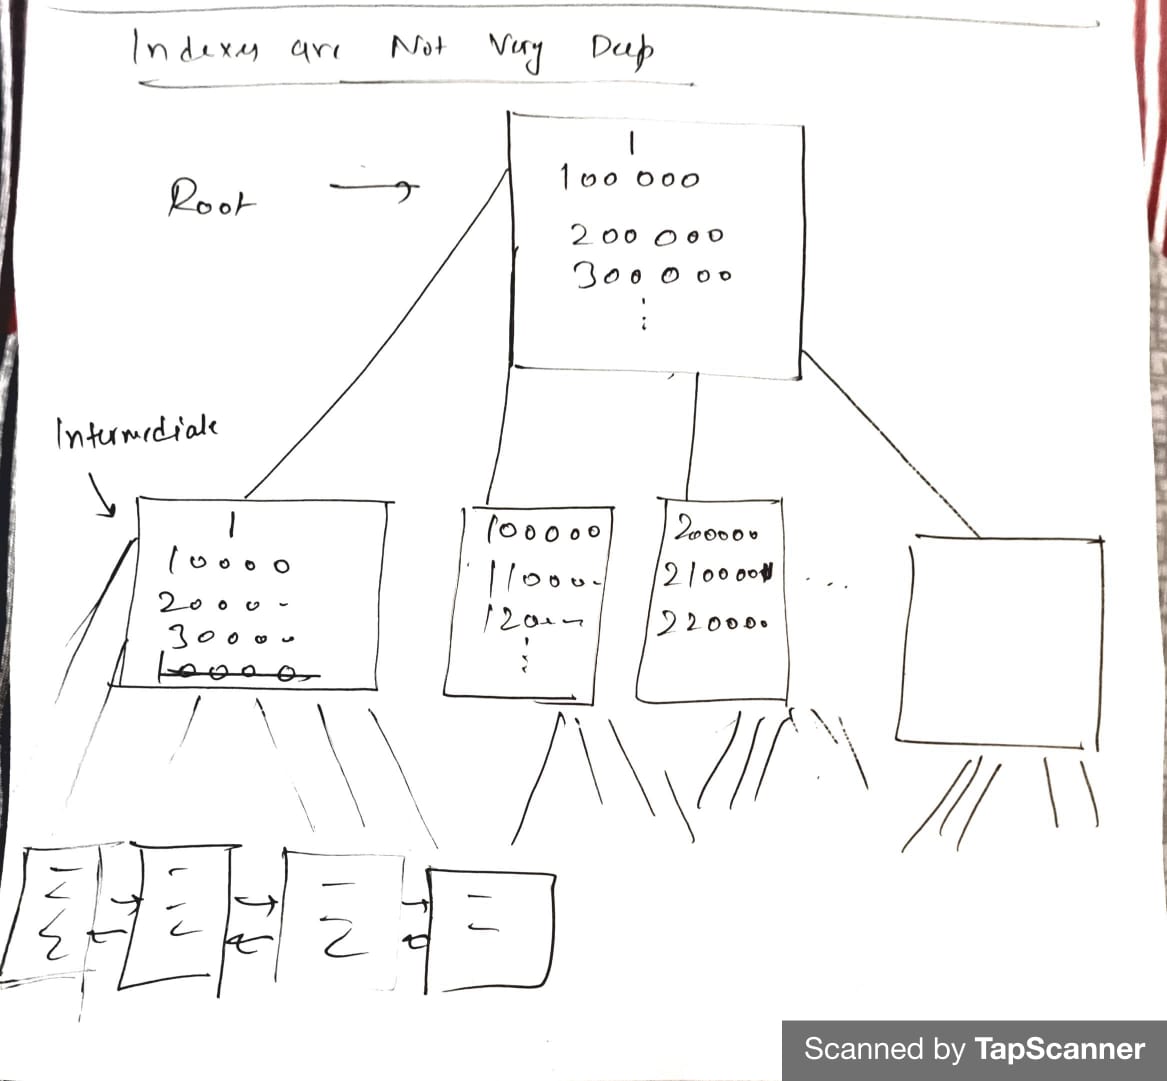 Indexes are Not Very Deep
Root
1
100 000
200 000
300 000
Intermediate
1
10000
20000
30000
100000
110000
200000
210000
220000
Scanned by TapScanner